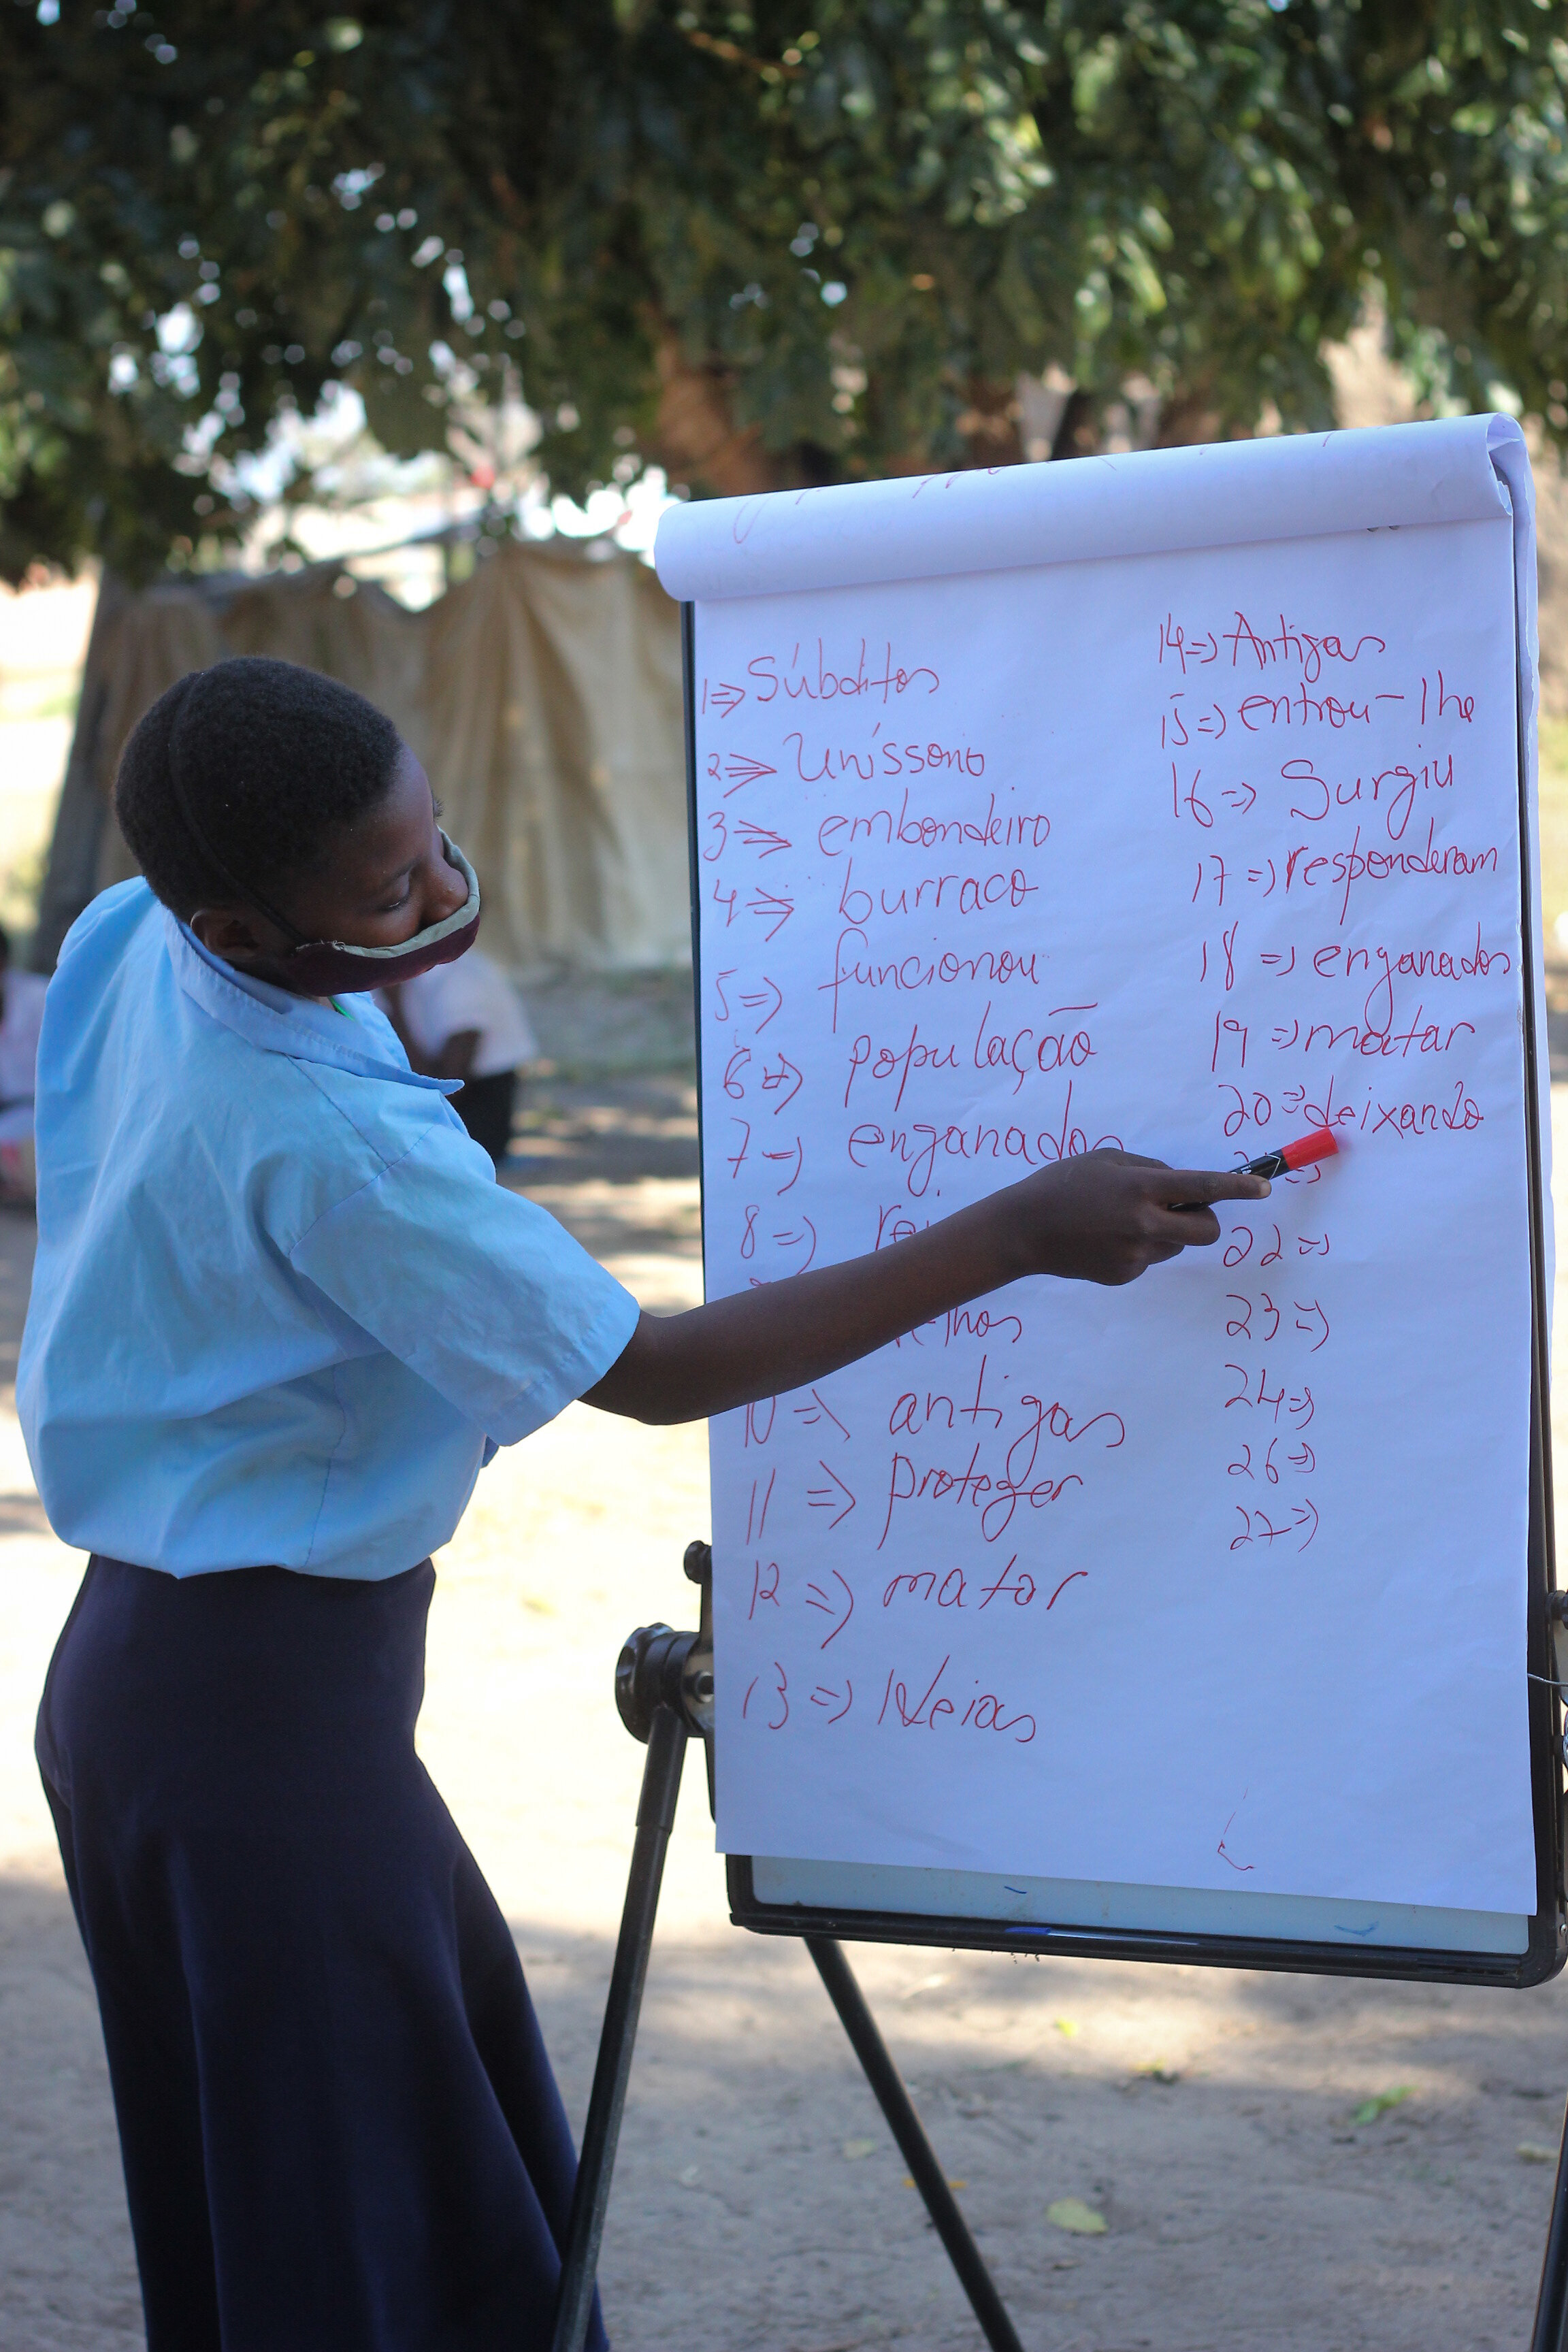 1=> Súbditos
2=> Uníssono
3=> embondeiro
4=> burraco
5=> funcionou
6=> população
7=> enganados
8=>
10=> antigas
11=> proteger
12=> matar
13=> Ideias
14=> Antigas
15=> entrou-lhe
16=> Surgiu
17=> responderam
18=> enganados
19=> matar
20=> deixando
22=>
23=>
24=>
26=>
27=>